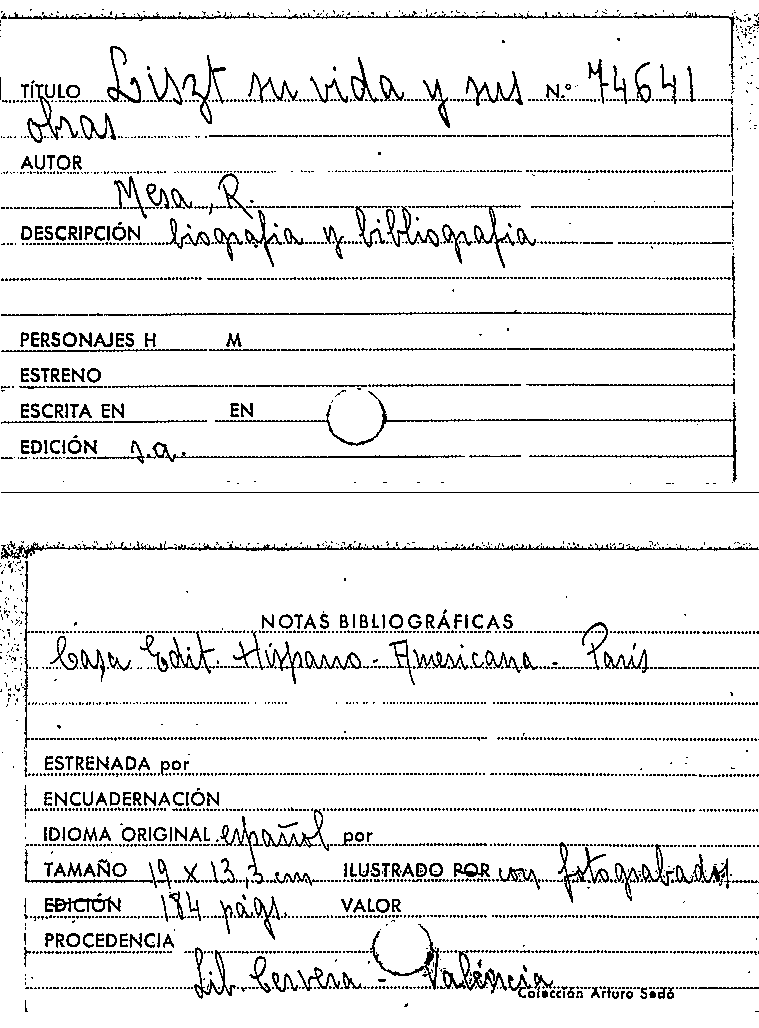 TÍTULO Liszt su vida y sus N.º 74641
obras
AUTOR
Mesa, R.
DESCRIPCIÓN biografia y bibliografia
PERSONAJES H M
ESTRENO
ESCRITA EN EN
EDICIÓN s.a.
NOTAS BIBLIOGRÁFICAS
Casa Edit. Hispano-Americana - París
ESTRENADA por
ENCUADERNACIÓN
IDIOMA ORIGINAL español por
TAMAÑO 19 x 13,3 cm ILUSTRADO POR con fotograbados
EDICIÓN 184 págs. VALOR
PROCEDENCIA
Lib. Cervera - Valéncia
Colección Arturo Sedó